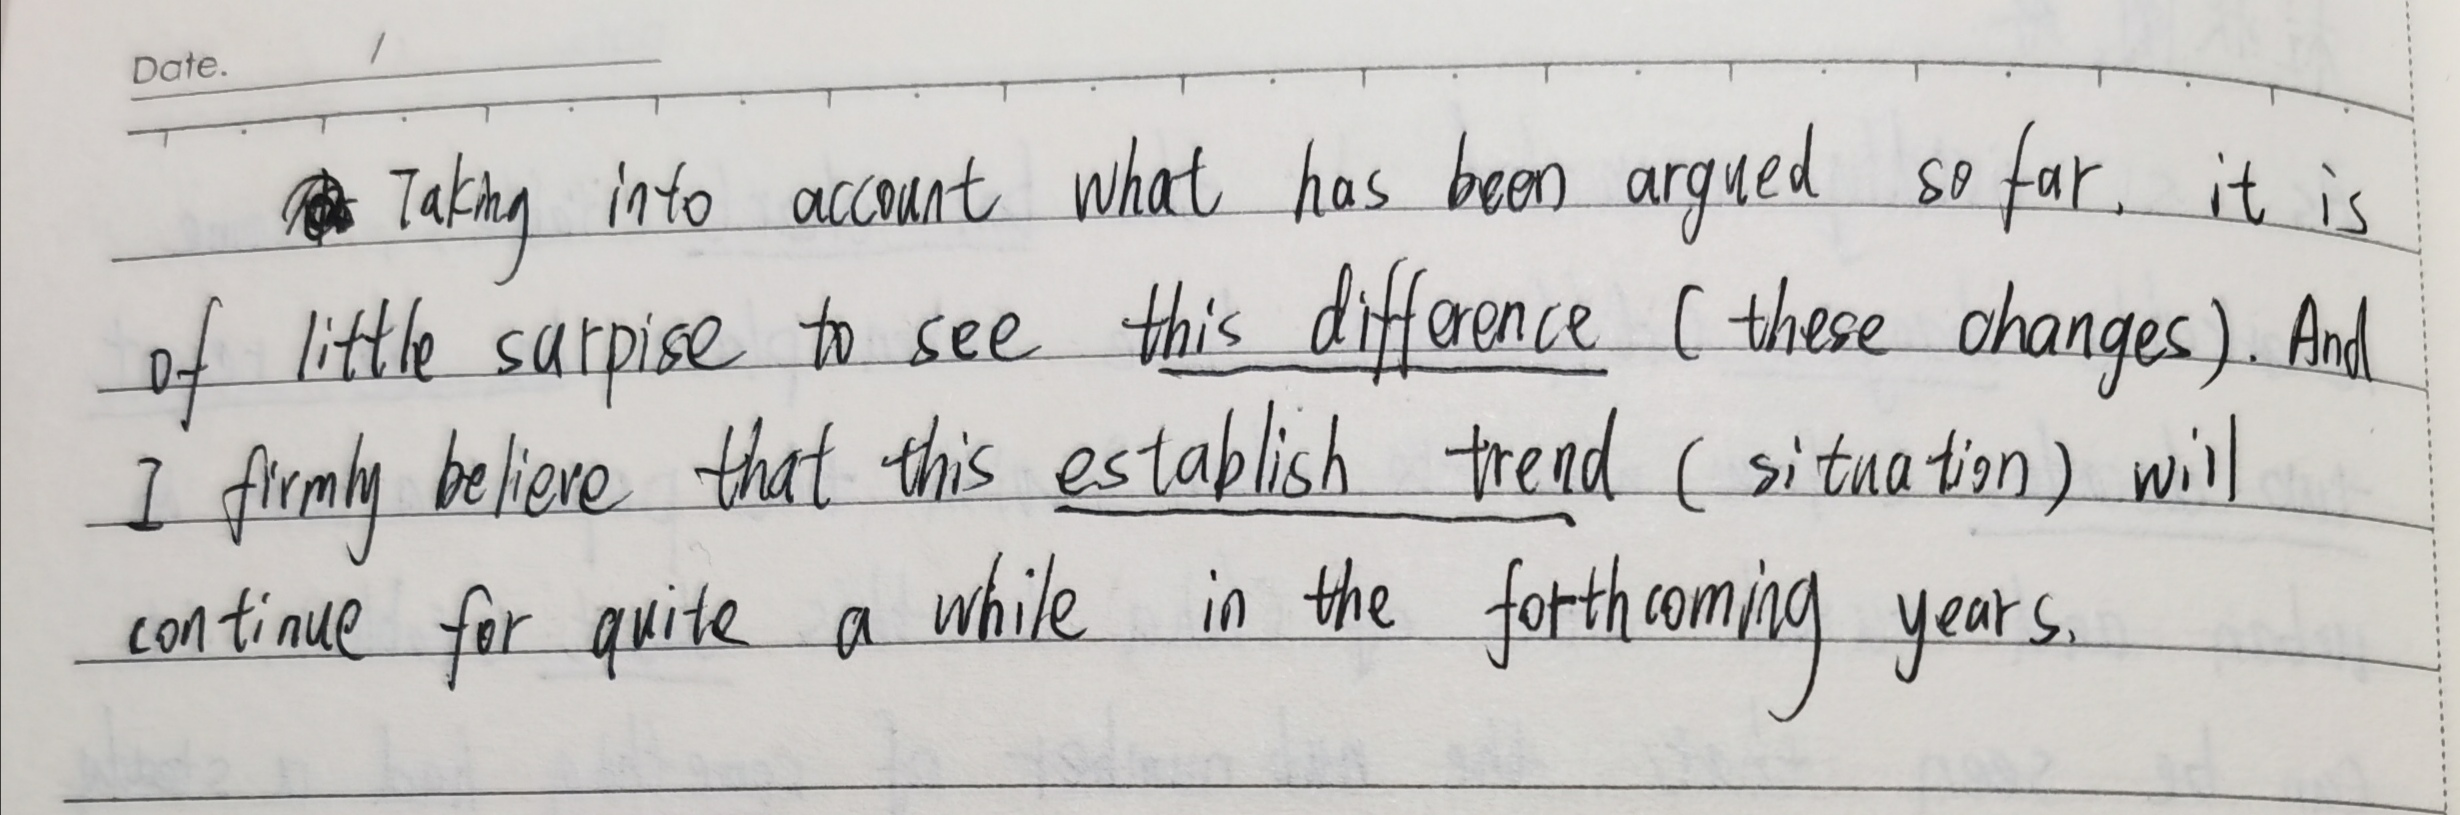 Date. /
Taking into account what has been argued so far, it is
of little surpise to see this difference (these changes). And
I firmly believe that this establish trend (situation) will
continue for quite a while in the forthcoming years.